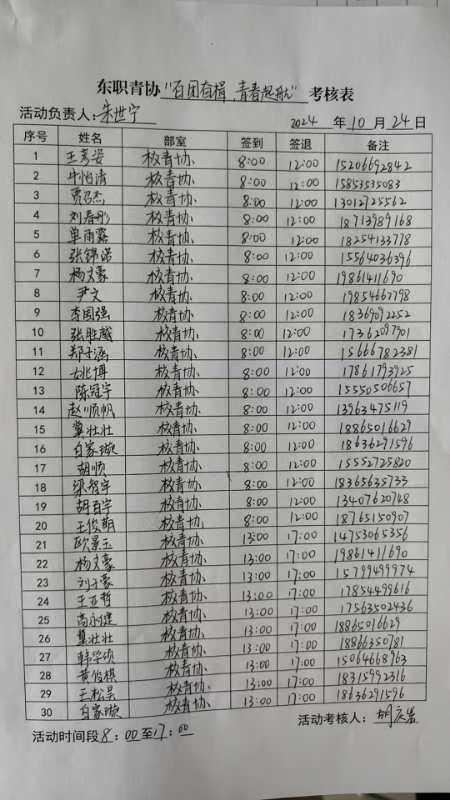 东职青协"百团有楫,青春起航"考核表
活动负责人:朱世宁 2024 年 10 月 24 日
序号 姓名 部室 签到 签退 备注
1 王彦姿 校青协 8:00 12:00 15206692842
2 牛怡清 校青协 8:00 12:00 15853535083
3 贾召杰 校青协 8:00 12:00 13012725562
4 刘春彤 校青协 8:00 12:00 18713989168
5 单雨露 校青协 8:00 12:00 18254133778
6 张锦浩 校青协 8:00 12:00 15564036396
7 杨文豪 校青协 8:00 12:00 19861411690
8 尹文 校青协 8:00 12:00 19854667798
9 李国强 校青协 8:00 12:00 18369092252
10 张胜威 校青协 8:00 12:00 17362097901
11 郑子涵 校青协 8:00 12:00 15666782381
12 姚博 校青协 8:00 12:00 17861793925
13 陈冠宇 校青协 8:00 12:00 15550506657
14 赵顺帆 校青协 8:00 12:00 13963475119
15 冀壮壮 校青协 8:00 12:00 18865016629
16 白家璇 校青协 8:00 12:00 18636291596
17 胡顺 校青协 8:00 12:00 15552725820
18 梁智宇 校青协 8:00 12:00 18365635733
19 胡百宇 校青协 8:00 12:00 13407620748
20 王俊朝 校青协 8:00 12:00 18765150907
21 欧景玉 校青协 13:00 17:00 14753065356
22 杨文豪 校青协 13:00 17:00 19861411690
23 刘子豪 校青协 13:00 17:00 15799499974
24 王百哲 校青协 13:00 17:00 17854499616
25 高永健 校青协 13:00 17:00 17563502436
26 冀壮壮 校青协 13:00 17:00 18865016629
27 韩学硕 校青协 13:00 17:00 18866350781
28 黄俊棋 校青协 13:00 17:00 15064668963
29 王松昊 校青协 13:00 17:00 18315992316
30 白家璇 校青协 13:00 17:00 18636291596
活动时间段8:00至17:00 活动考核人:胡庆岩